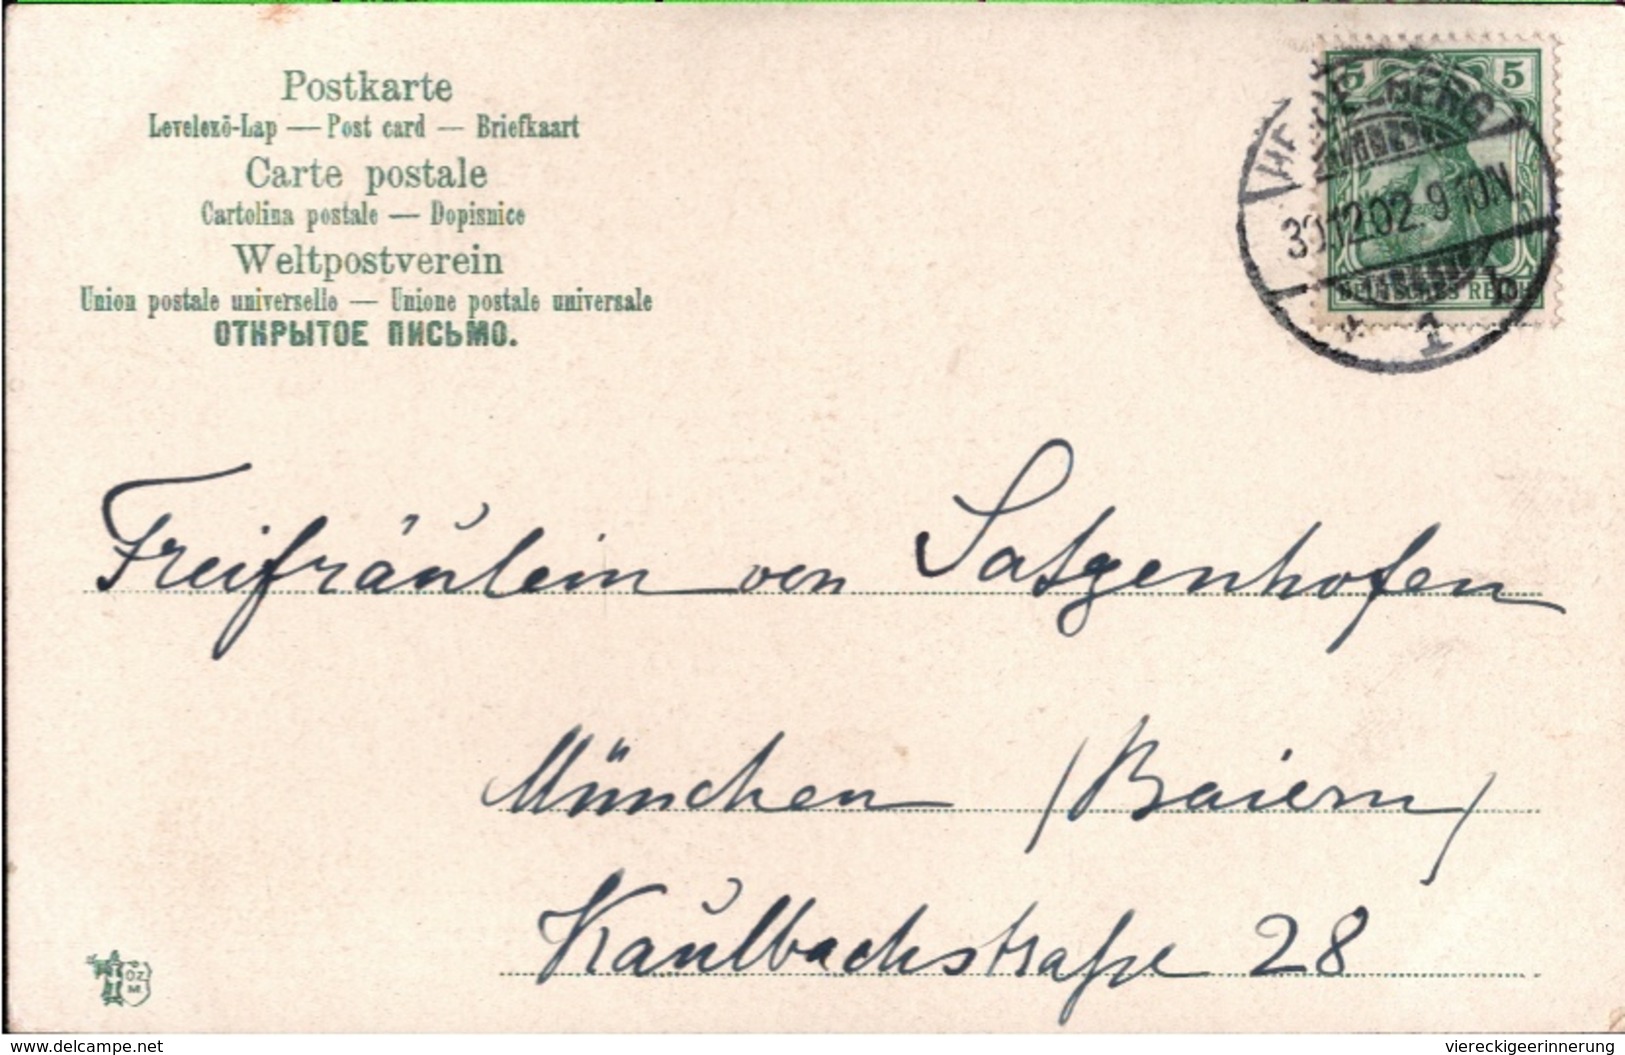 Postkarte
Levelező-Lap — Post card — Briefkaart
Carte postale
Cartolina postale — Dopisnice
Weltpostverein
Union postale universelle — Unione postale universale
ОТКРЫТОЕ ПИСЬМО.
5 5
DEUTSCHES REICH
HEIDELBERG
30.12.02. 9-10N.
* 1 b
Freifräulein von Satgenhofen
München (Baiern)
Kaulbachstraße 28
OZM
www.delcampe.net
viereckigeerinnerung